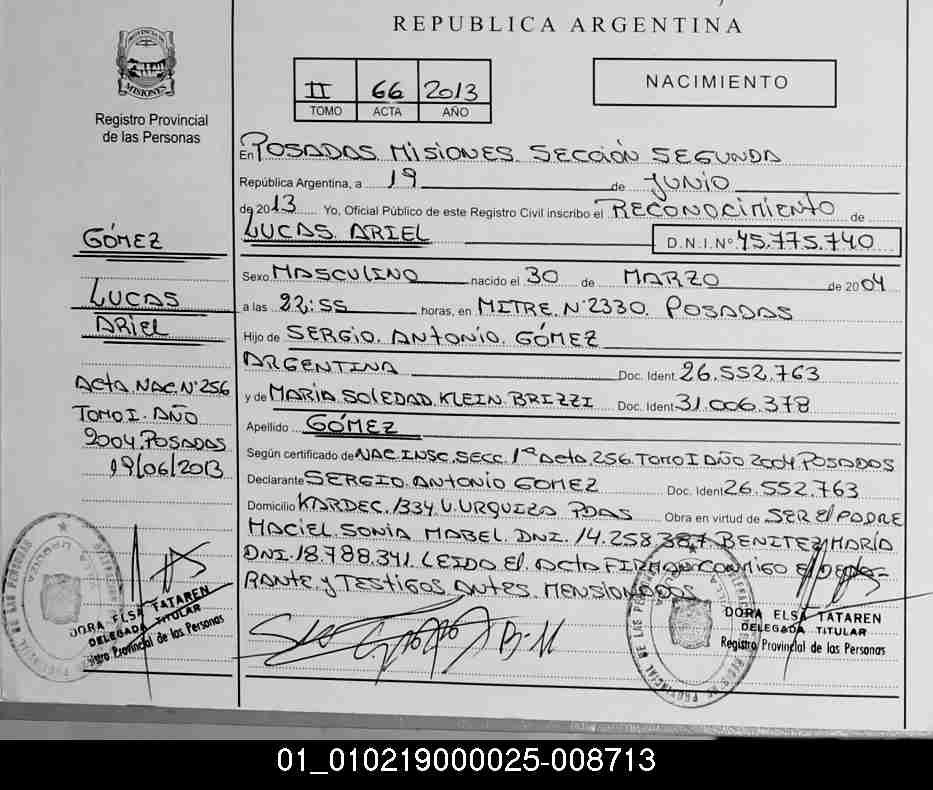 REPUBLICA ARGENTINA
PROVINCIA DE
MISIONES
Registro Provincial
de las Personas
II 66 2013
TOMO ACTA AÑO
NACIMIENTO
En POSADAS. MISIONES. SECCIÓN SEGUNDA
República Argentina, a 19 de JUNIO
de 2013 Yo, Oficial Público de este Registro Civil inscribo el RECONOCIMIENTO de
LUCAS ARIEL D.N.I.Nº 45.775.740
Sexo MASCULINO nacido el 30 de MARZO de 2004
a las 22:55 horas, en MITRE. Nº2330. POSADAS
Hijo de SERGIO. ANTONIO. GÓMEZ
ARGENTINA Doc. Ident. 26.552.763
y de MARIA SOLEDAD. KLEIN. BRIZZI Doc. Ident. 31.006.378
Apellido GÓMEZ
Según certificado de NAC. INSC. SECC. 1ª Acta. 256. TOMO I AÑO 2004 POSADOS
Declarante SERGIO. ANTONIO GOMEZ Doc. Ident 26.552.763
Domicilio KARDEC. 1334. V. URQUIZA PDAS Obra en virtud de SER El PADRE
MACIEL SONIA MABEL. DNI. 14.258.387. BENITEZ MARÍA
DNI. 18.788.341. LEIDO El ACTA FIRMAN CONMIGO El DEPA-
RANTE y TESTIGOS ANTES MENSIONADOS
DORA ELSA TATAREN
DELEGADA TITULAR
Registro Provincial de las Personas
GÓMEZ
LUCAS
ARIEL
Acta. NAC. Nº256
TOMO I. AÑO
2004. POSADAS
19/06/2013
DORA ELSA TATAREN
DELEGADA TITULAR
Registro Provincial de las Personas
01_010219000025-008713